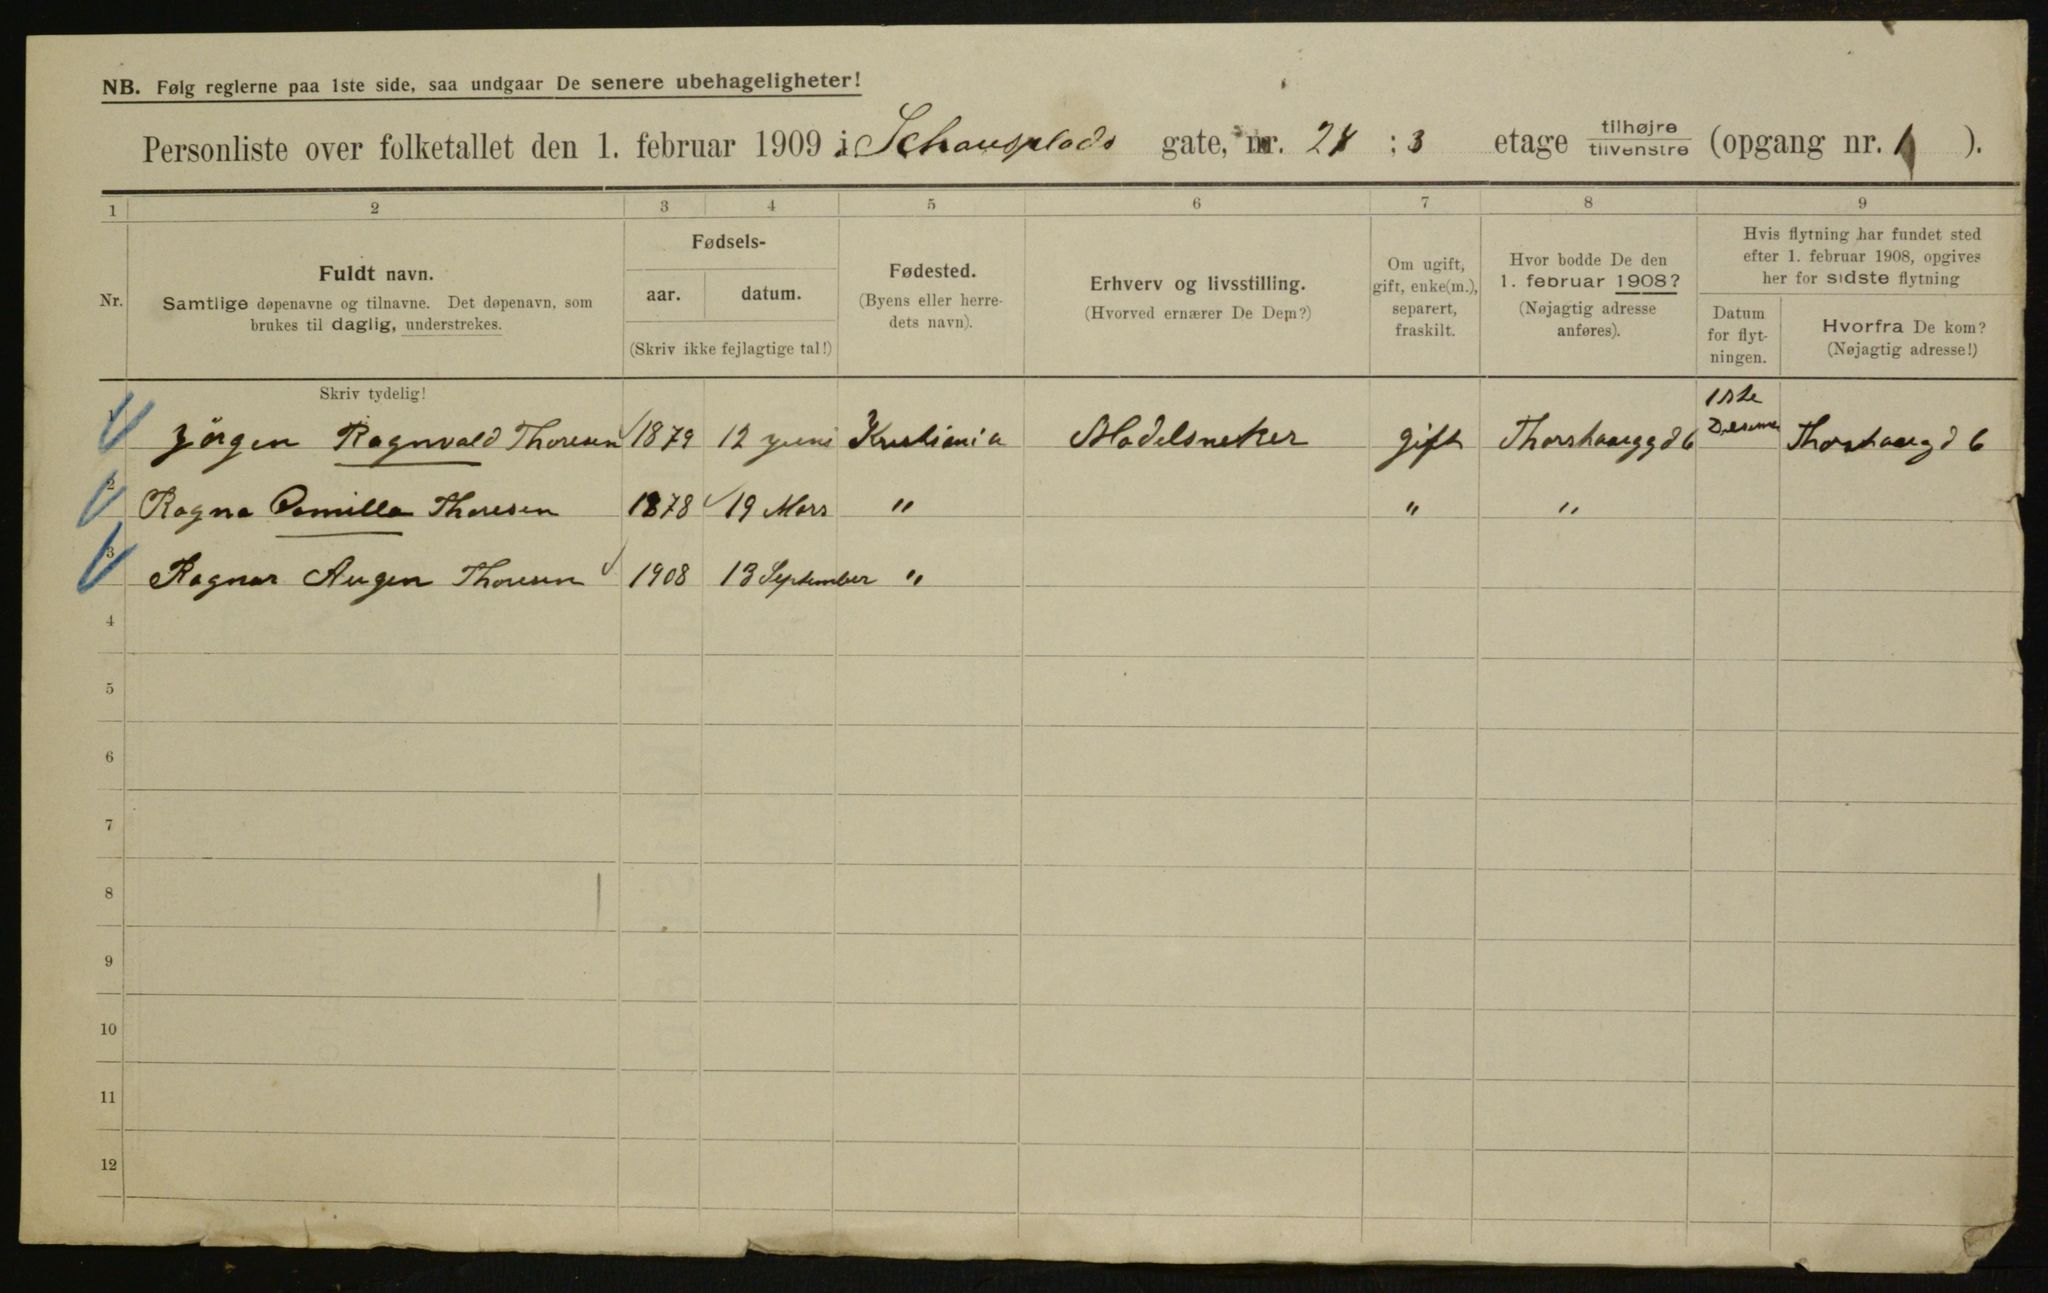 NB. Følg reglerne paa 1ste side, saa undgaar De senere ubehageligheter!
Personliste over folketallet den 1. februar 1909 i Schousplads gate, nr. 24 ; 3 etage tilhøjre tilvenstre (opgang nr. 1 ).
1 2 3 4 5 6 7 8 9
Nr.
Fuldt navn.
Samtlige døpenavne og tilnavne. Det døpenavn, som
brukes til daglig, understrekes.
Fødsels-
aar. datum.
(Skriv ikke fejlagtige tal!)
Fødested.
(Byens eller herre-
dets navn).
Erhverv og livsstilling.
(Hvorved ernærer De Dem?)
Om ugift,
gift, enke(m.),
separert,
fraskilt.
Hvor bodde De den
1. februar 1908?
(Nøjagtig adresse
anføres).
Hvis flytning har fundet sted
efter 1. februar 1908, opgives
her for sidste flytning
Datum
for flyt-
ningen.
Hvorfra De kom?
(Nøjagtig adresse!)
Skriv tydelig!
1 Jörgen Ragnvald Thoresen 1879 12 juni Kristiania Modelsneker gift Thorshauggd 6 1ste Thorshaugd 6
2 Ragna Camilla Thoresen 1878 19 Mars " " "
3 Ragnar Augen Thoresen 1908 13 September "
4
5
6
7
8
9
10
11
12